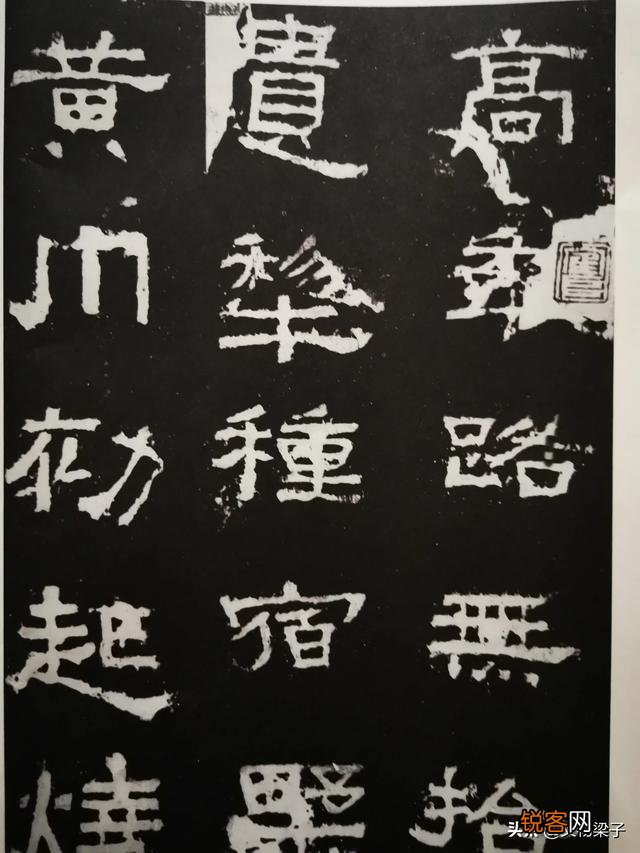 高年路無拾
遺犂種宿野
黄巾初起燒
锐客网
梁子